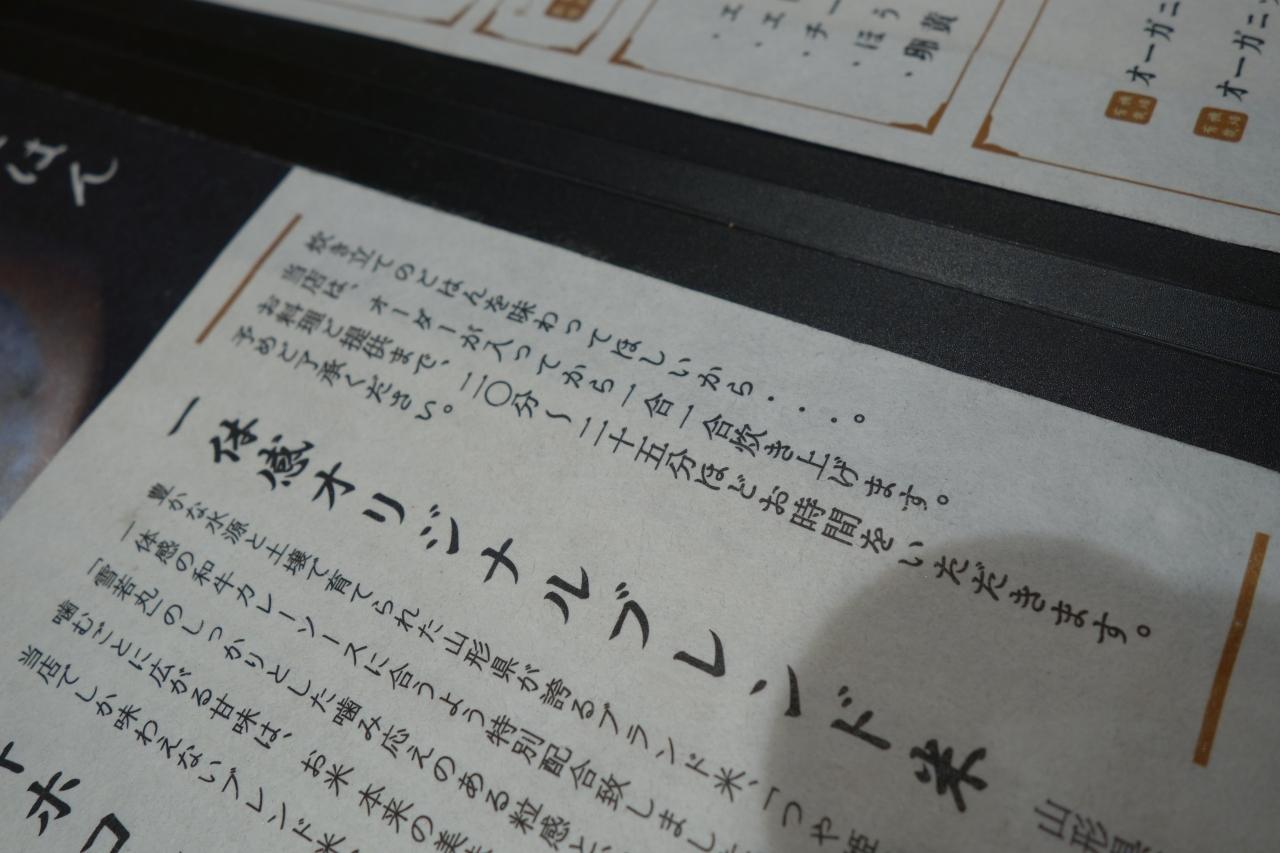 ・エ
・エ
・チー
・ほう
・卵黄
オーガニ
オーガニ
ごはん
炊き立てのごはんを味わってほしいから・・・。
当店は、オーダーが入ってから一合一合炊き上げます。
お料理ご提供まで、二〇分〜二十五分ほどお時間をいただきます。
予めご了承ください。
一体感オリジナルブレンド米
山形県
豊かな水源と土壌で育てられた山形県が誇るブランド米、「つや姫
一体感の和牛カレーソースに合うよう特別配合致しまし
「雪若丸」のしっかりとした噛み応えのある粒感と、
噛むごとに広がる甘味は、お米本来の美
当店でしか味わえないブレンド米
ホコ